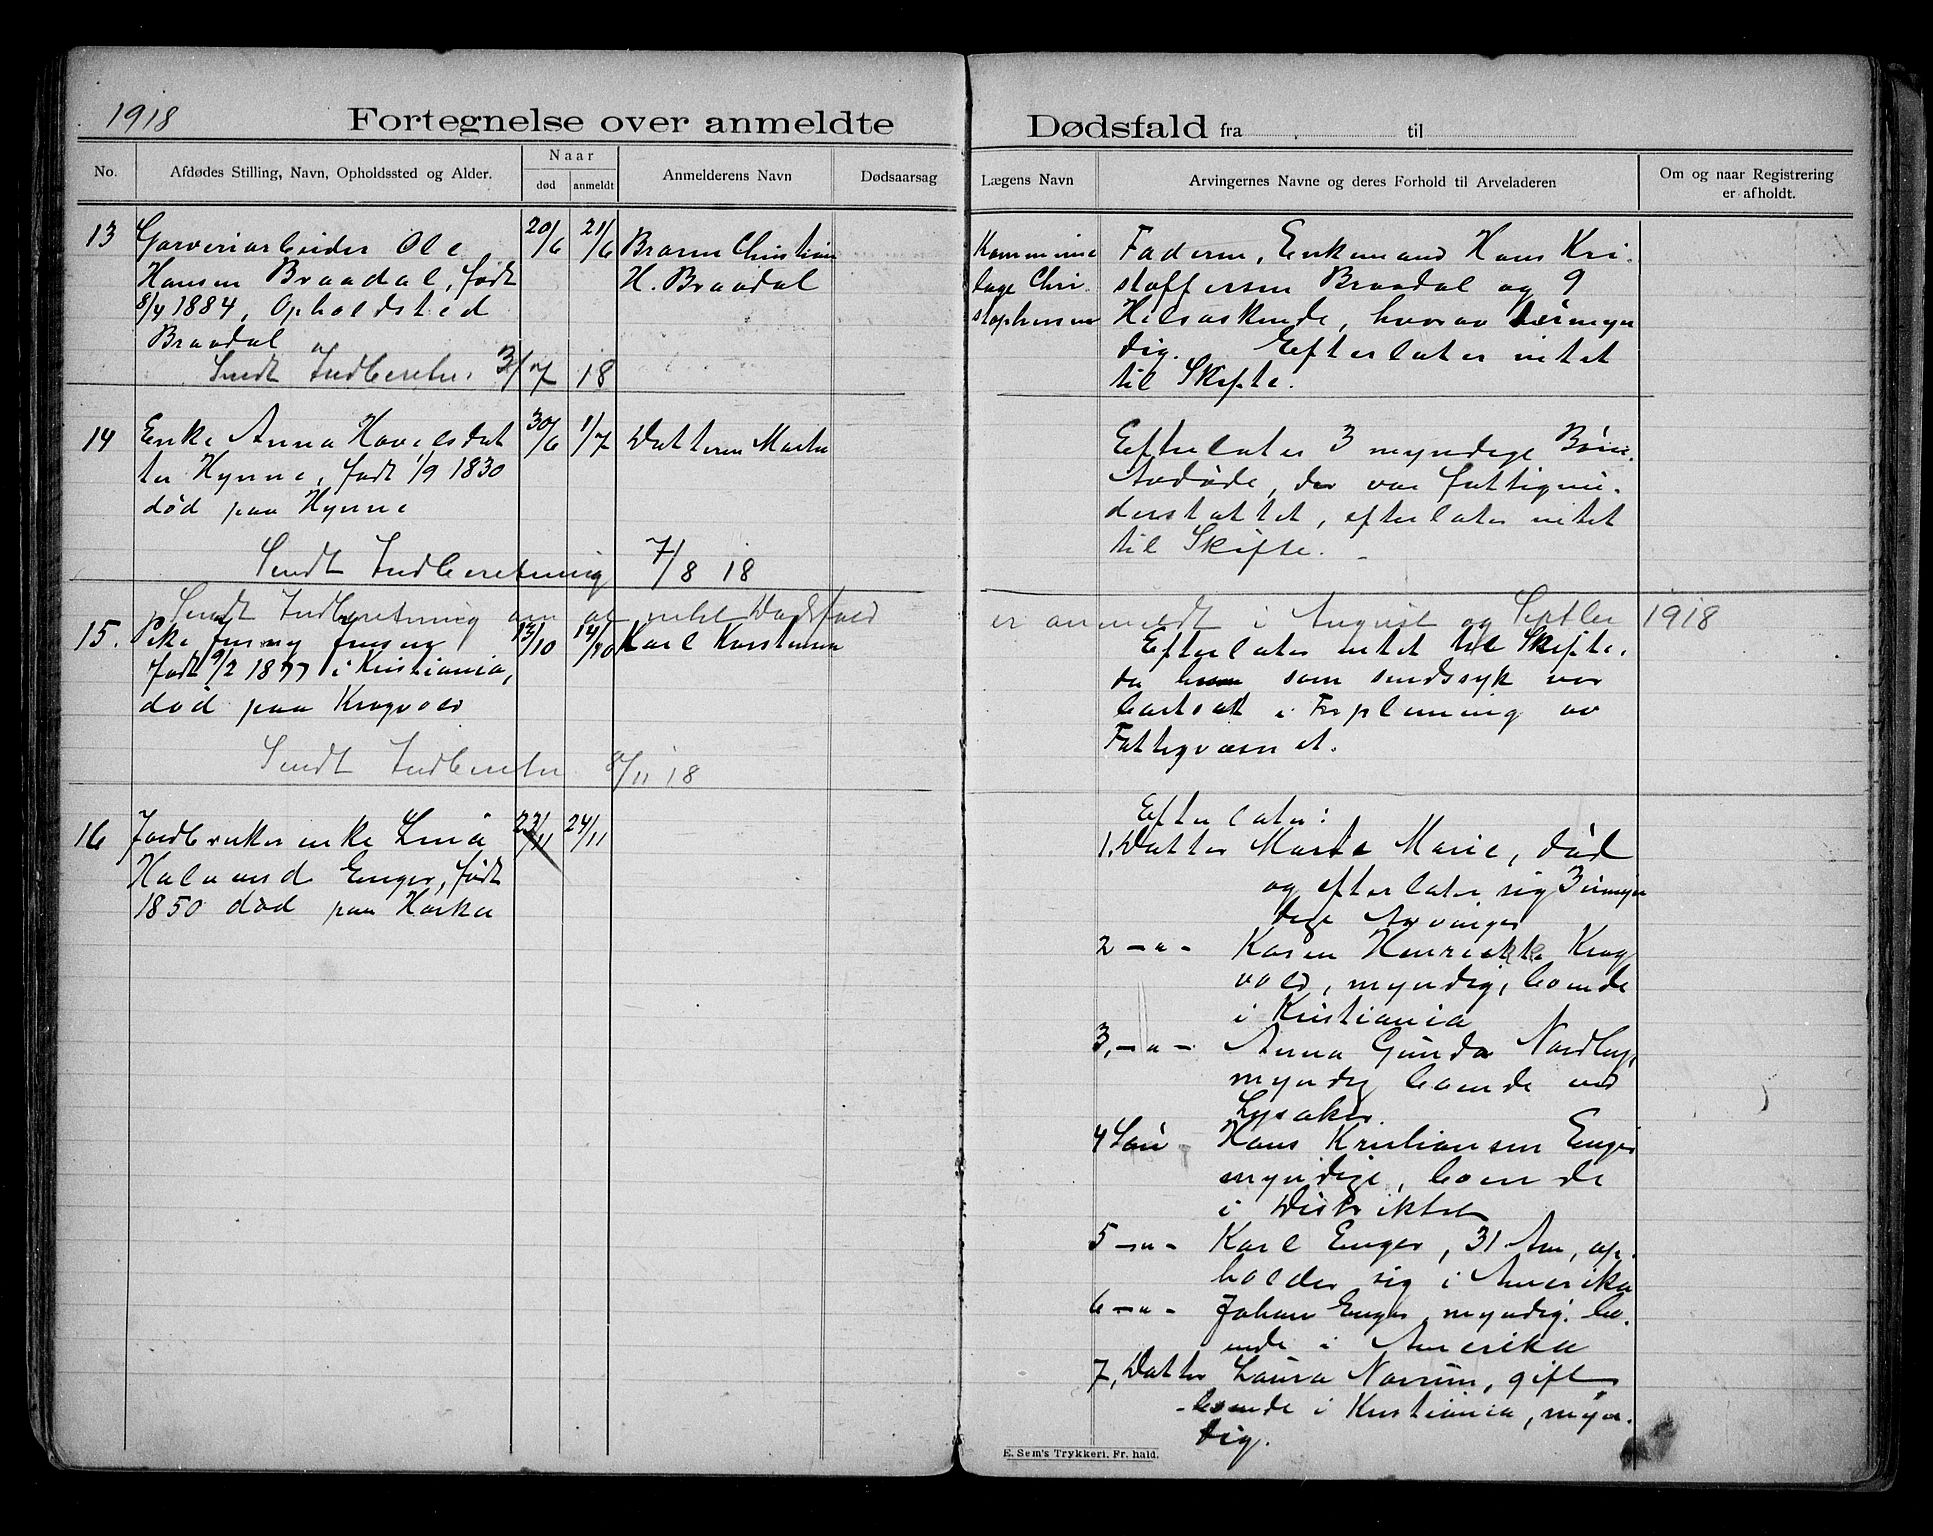 1918
Fortegnelse over anmeldte Dødsfald fra til
No.
Afdødes Stilling, Navn, Opholdssted og Alder.
Naar
død
anmeldt
Anmelderens Navn
Dødsaarsag
Lægens Navn
Arvingernes Navne og deres Forhold til Arveladeren
Om og naar Registrering
er afholdt.
13 Garveriarbeider Ole 20/6 21/6 Broren Christian
Hansen Braadal, født H. Braadal
8/4 1884, Opholdsted
Braadal
Sendt Indberetn. 3/7 18
Kommune
læge Chri
stophersen
Faderen, Enkemand Hans Kri.
stoffersen Braadal og 9
Helsøskende, hvorav 1 ürmyn
dig. Efterlater intet
til Skifte.
14 Enke Anna Havelsdat 30/6 1/7 Datteren Marta
ter Hynne, født 1/9 1830
død paa Hynne
Sendt Indberetning 7/8 18
Efterlater 3 myndige Børn.
Avdøde, der var fattigun.
derstøttet, efterlater intet
til Skifte.
Sendt Indberetning om at intet Dødsfald er anmeldt i August og Septbr 1918
15. Pike Jenny Jensen 13/10 14/10 Karl Karstensen
født 9/2 1877 i Kristiania,
død paa Kragvold
Sendt Indberetn 8/11 18
Efterlater intet til Skifte,
da hun som sindssyk var
bortsat i Forpleining av
Fattigvæsnet.
16 Jordbrukerenke Lina 22/11 24/11
Halvord Enger, født
1850 død paa Haska
Efterlater:
1. Datter Marte Marie, død
og efterlater sig 3 umyn
dige Arvinger
2 -"- Karen Henriekke Krag
vold, myndig, boende
i Kristiania
3. -"- Anna Gunda Nordby,
myndig boende ved
Lysaker
4 Søn Hans Kristiansen Enger
myndige, boende
i Distriktet
5 -"- Karl Enger, 31 Aar, op.
holder sig i Amerika
6 -"- Johan Enger myndig. bo.
ende i Amerika
7, Datter Laura Norum, gift
boende i Kristiania, myn.
dig.
E. Sem's Trykkeri, Fr. hald.